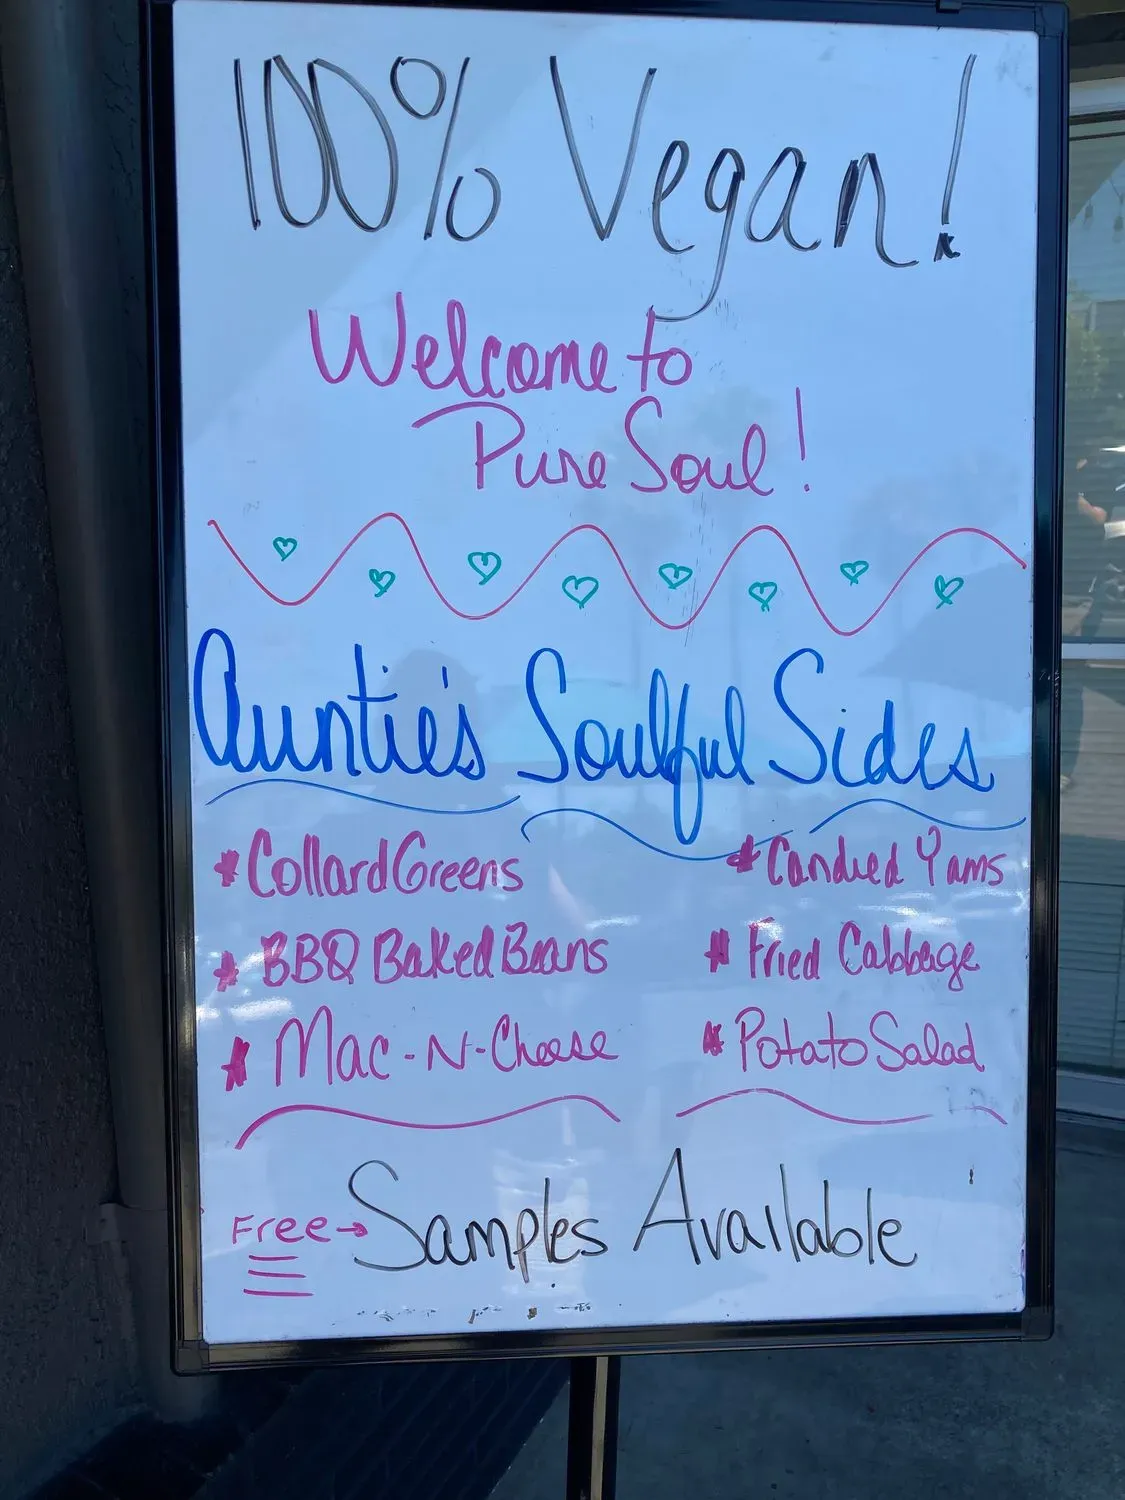 100% Vegan!
Welcome to
Pure Soul!
Auntie's Soulful Sides
* Collard Greens
* Candied Yams
* BBQ Baked Beans
* Fried Cabbage
* Mac-N-Cheese
* Potato Salad
Free → Samples Available